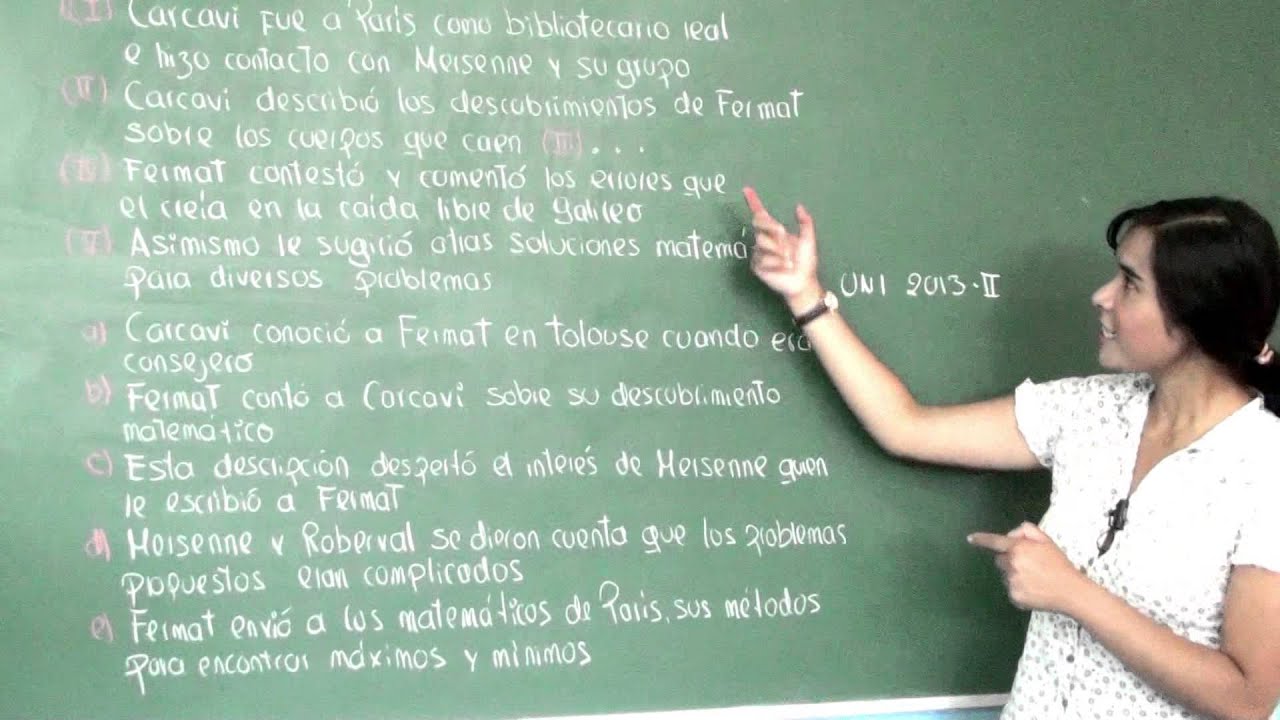 (I) Carcavi fue a París como bibliotecario real
e hizo contacto con Mersenne y su grupo
(II) Carcavi describió los descubrimientos de Fermat
sobre los cuerpos que caen (III) ...
(IV) Fermat contestó y comentó los errores que
el creía en la caída libre de Galileo
(V) Asimismo le sugirió otras soluciones matemá
para diversos problemas
UNI 2013-II
a) Carcavi conoció a Fermat en tolouse cuando era
consejero
b) Fermat contó a Carcavi sobre su descubrimiento
matemático
c) Esta descripción despertó el interés de Mersenne quien
le escribió a Fermat
d) Mersenne y Roberval se dieron cuenta que los problemas
propuestos eran complicados
e) Fermat envió a los matemáticos de París, sus métodos
para encontrar máximos y mínimos